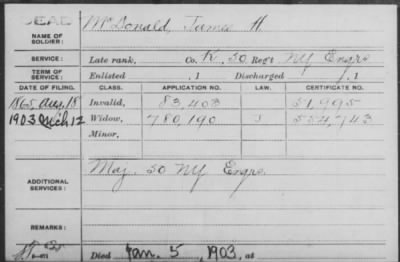 DEAD
NAME OF SOLDIER: McDonald, James H.
SERVICE: Late rank, Co. K, 50 Reg't NY Engrs
TERM OF SERVICE: Enlisted , 1 Discharged , 1
DATE OF FILING. CLASS. APPLICATION NO. LAW. CERTIFICATE NO.
1865, Aug. 18 Invalid, 83,403 51,995
1903 Mch 12 Widow, 780,190 J 554,743
Minor,
ADDITIONAL SERVICES: Maj. 50 NY Engrs.
REMARKS:
Died Jan. 5, 1903, at